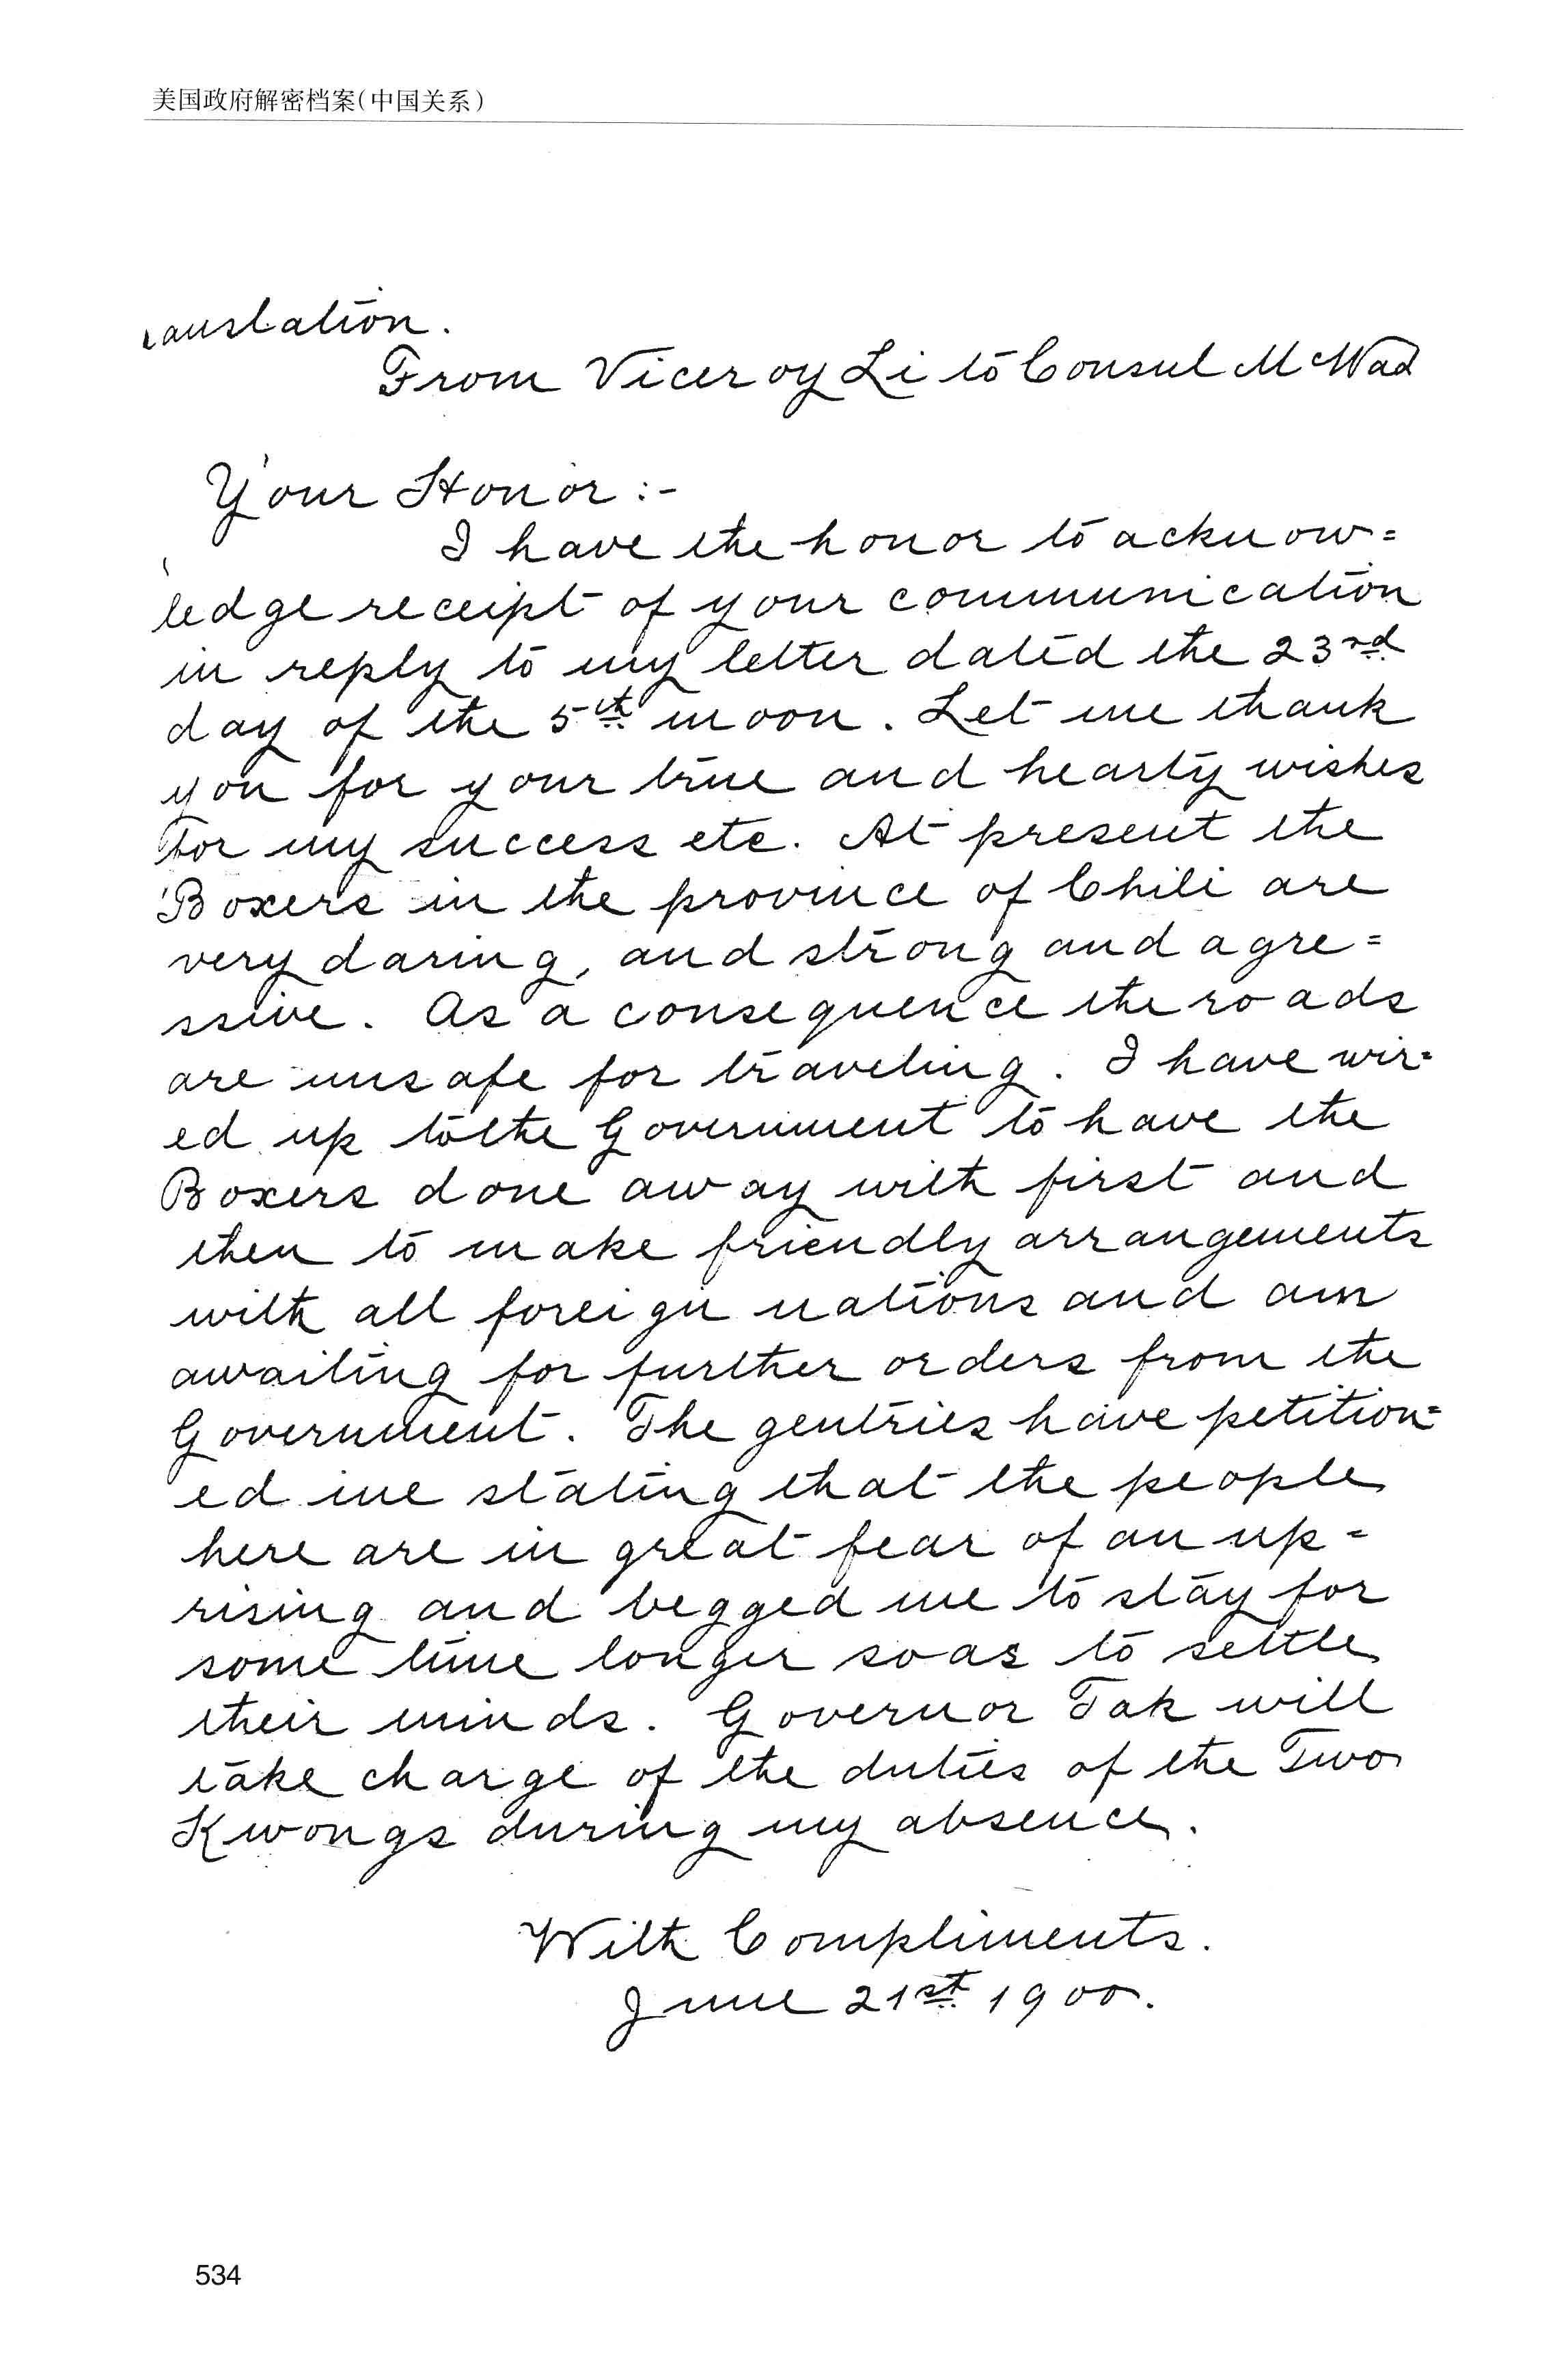 美国政府解密档案(中国关系)
anslation.
From Viceroy Li to Consul McWad
Your Honor :-
I have the honor to acknow=
ledge receipt of your communication
in reply to my letter dated the 23rd
day of the 5th moon. Let me thank
you for your true and hearty wishes
for my success etc. At present the
Boxers in the province of Chili are
very daring, and strong and agre=
ssive. As a consequence the roads
are unsafe for traveling. I have wir=
ed up to the Government to have the
Boxers done away with first and
then to make friendly arrangements
with all foreign nations and am
awaiting for further orders from the
Government. The gentries have petition=
ed me stating that the people
here are in great fear of an up=
rising and begged me to stay for
some time longer so as to settle
their minds. Governor Tak will
take charge of the duties of the Two
Kwongs during my absence.
With Compliments.
June 21st 1900.
534